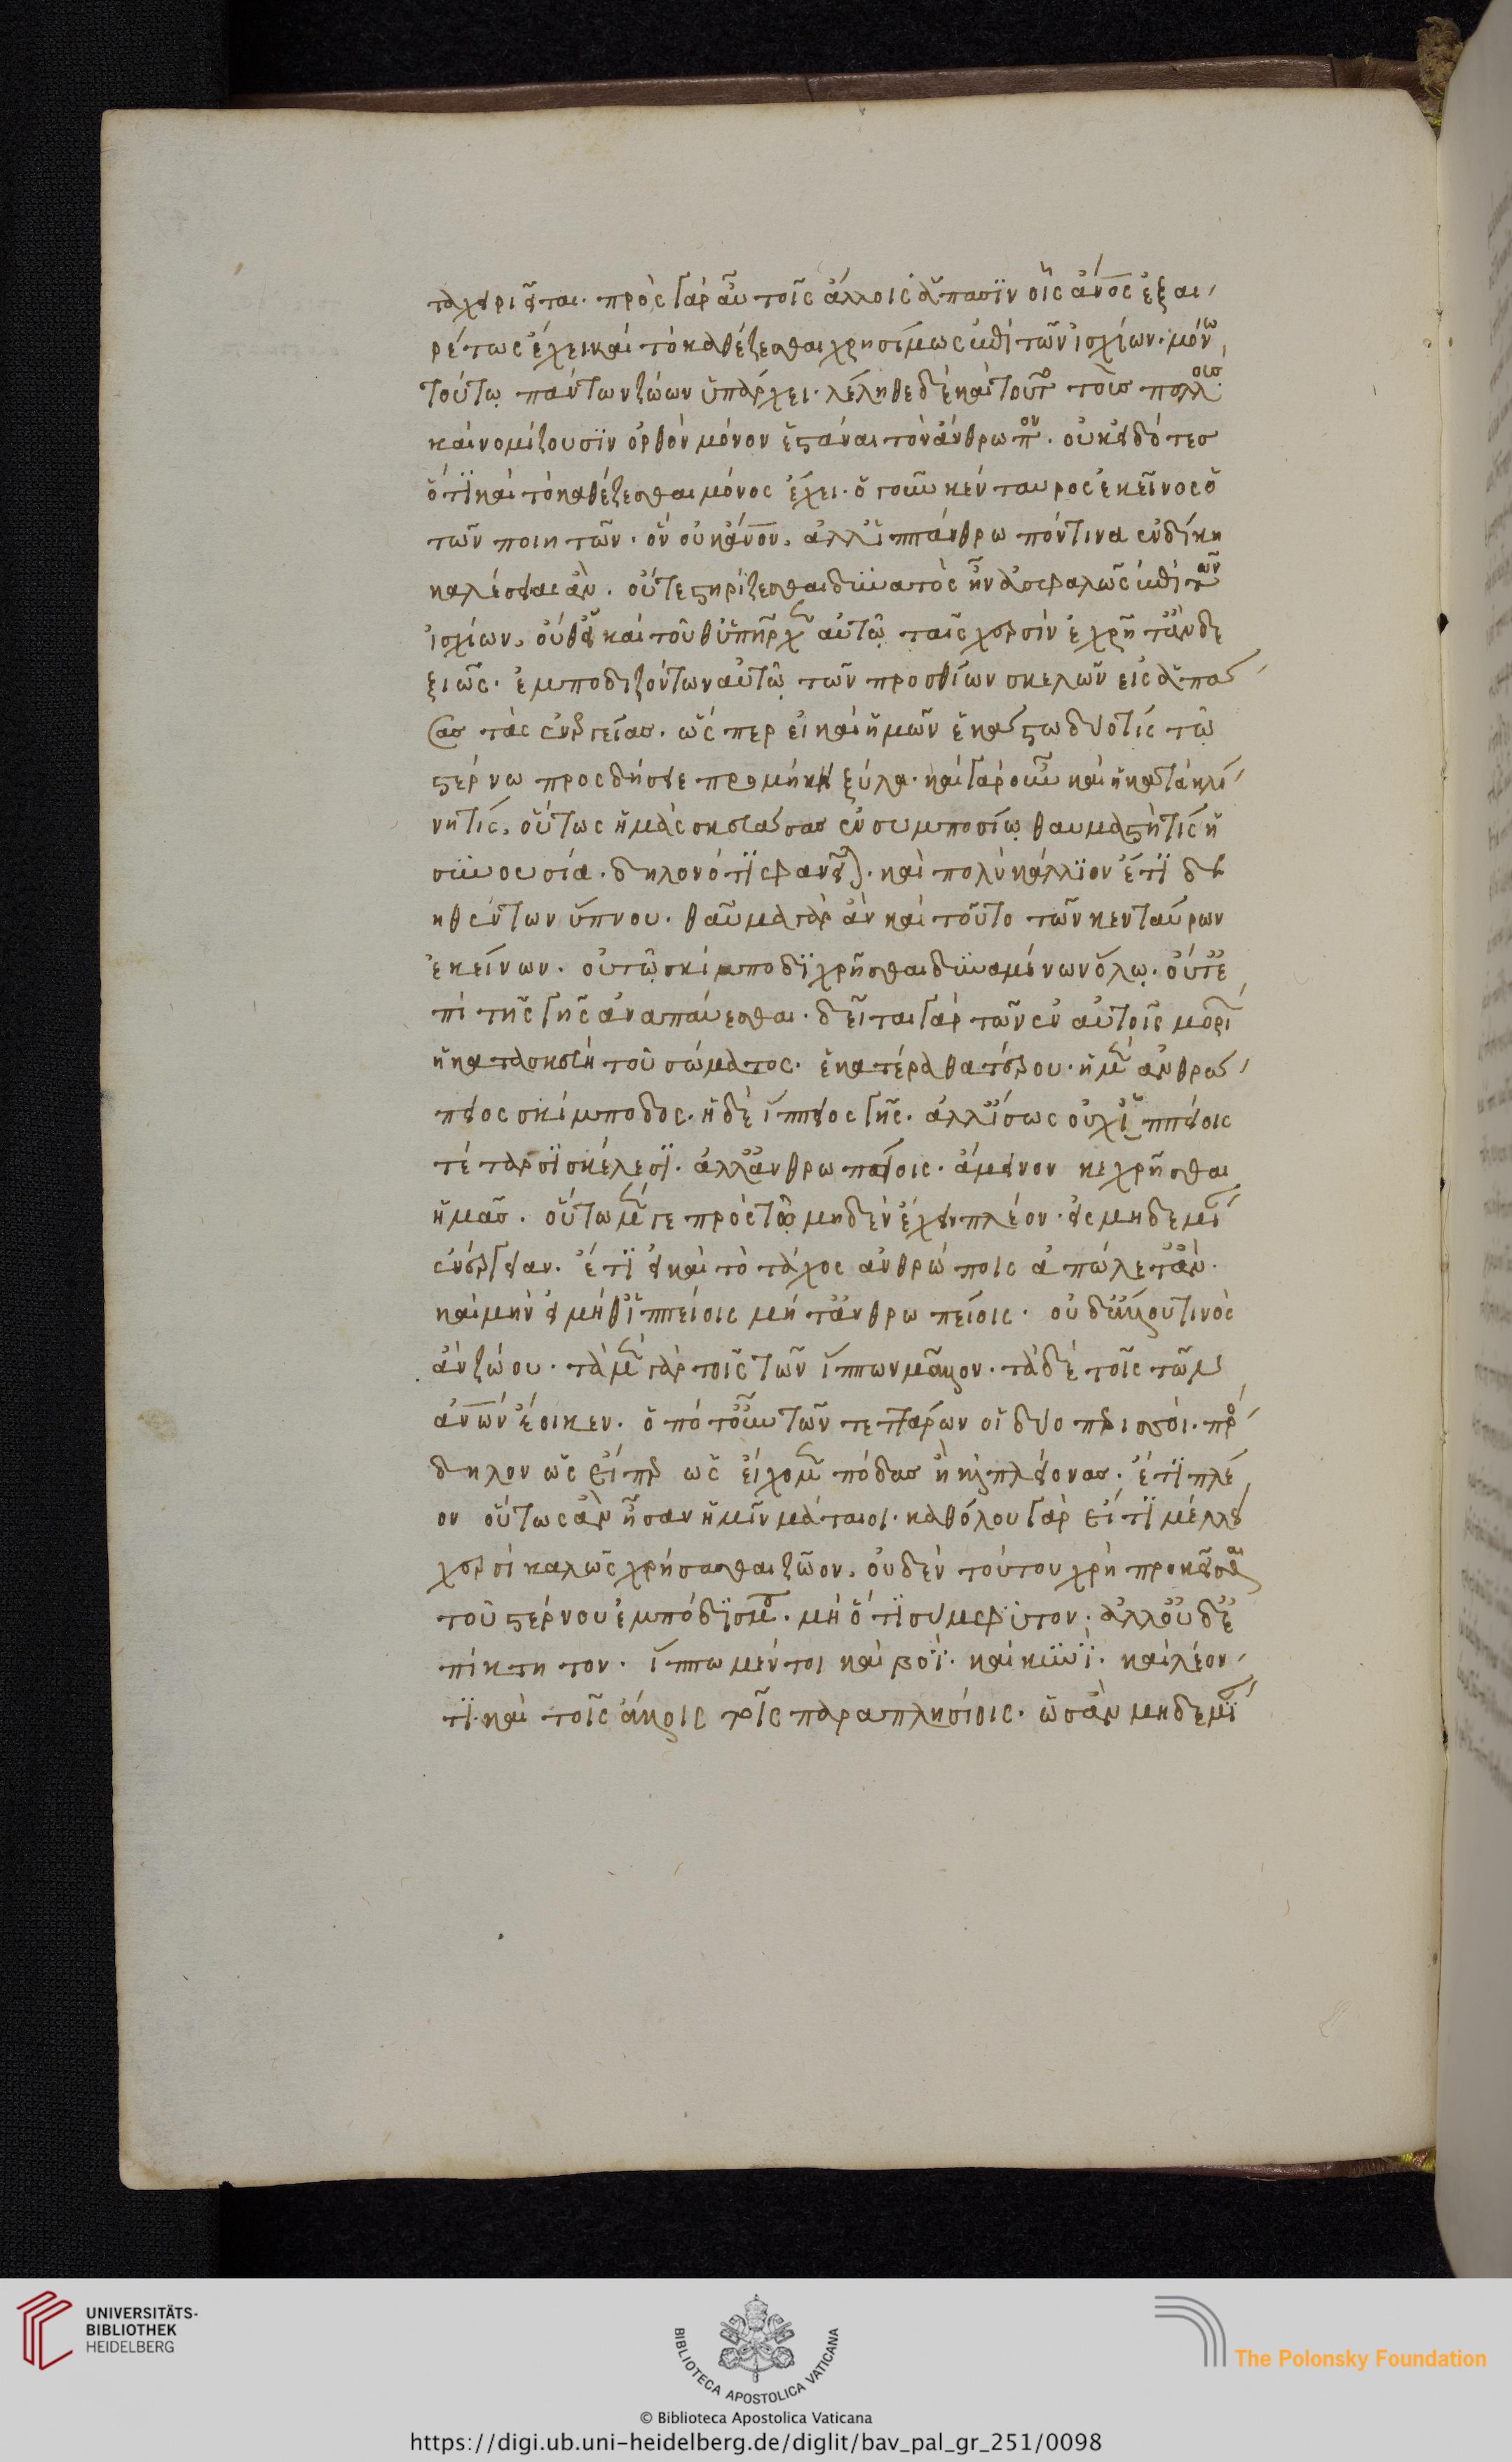 ταχειριεῖται. πρὸς γὰρ αὖ τοῖς ἄλλοις ἅπασϊν οἷς ἄν̅ο̅ς ἐξαι
ρέτως ἔχει καὶ τὸ καθέζεσθαι χρησίμως ἐπὶ τῶν ἰσχίων. μόνω
τούτῳ πάντων ζώων ὑπάρχει. λέληθε δὲ καὶ τοῦτο τοὺσ πολλοὺσ.
καὶ νομίζουσϊν ὀρθὸν μόνον ἑστάναι τὸν ἄνθρωπον. οὐκ εἰδότεσ
ὅτϊ καὶ τὸ καθέζεσθαι μόνος ἔχει. ὁ γοῦν κένταυρος ἐκεῖνος ὁ
τῶν ποιητῶν. ὃν οὐκ ἄν̅ο̅ν, ἀλλ' ἱππάνθρωπόν τινα ἐν δίκη
καλέσειας ἄν. οὔτε στηρίζεσθαι δϋνατὸς ἦν ἀσφαλῶς ἐπὶ τῶν
ἰσχίων, οὔθ' εἰ καὶ τοῦθ' ὑπῆρχεν αὐτῷ ταῖς χερσὶν ἐχρῆτ' ἂν δε
ξιῶς. ἐμποδιζόντων αὐτῷ τῶν προσθίων σκελῶν εἰς ἁπά
σασ τὰς ἐνεργείασ. ὥς περ εἰ καὶ ἡμῶν ἑκάστω δύο τίς τῷ
στέρνω προσδήσειε προμήκη ξύλα. καὶ γὰρ οὖν καὶ ἡ κατάκλι
νή τις, οὕτως ἡμᾶς σκευάσασ ἐν συμποσίῳ θαυμαστή τις ἡ
σϋνουσία. δηλονότϊ φανεῖται. καὶ πολὺ κάλλϊον ἔτϊ δε
ηθέντων ὕπνου. θαῦμα γὰρ ἂν καὶ τοῦτο τῶν κενταύρων
ἐκείνων. οὐ τῷ σκίμποδϊ χρῆσθαι δϋναμένων ὅλῳ. οὔτ' ἐ
πὶ τῆς γῆς ἀναπαύεσθαι. δεῖται γὰρ τῶν ἐν αὐτοῖς μορί
ἡ κατασκευὴ τοῦ σώματος. ἑκατέρα θατέρου. ἡ μὲν ἀνθρω
πειος σκίμποδος. ἡ δὲ ἵππειος γῆς. ἀλλ' ἴσως οὐχ ἱππείοις
τέταρσϊ σκέλεσϊ. ἀλλ' ἀνθρωπείοις. ἄμεινον κεχρῆσθαι
ἡμᾶσ. οὕτω μέν γε πρὸς τῷ μηδὲν ἔχειν πλέον. εἰς μηδεμί
ἐνέργειαν. ἔτϊ εἰ καὶ τὸ τάχος ἀνθρώποις ἀπώλετ' ἄν.
καὶ μὴν εἰ μήθ' ἱππείοις μήτ' ἀνθρωπείοις. οὐδ' ἄλλου τινὸς
ἂν ζώου. τὰ μὲν γὰρ τοῖς τῶν ἵππων μᾶλλον. τὰ δὲ τοῖς τῶν
ἀν̅ω̅ν ἔοικεν. ὁπότ' οὖν τῶν τεττάρων οἱ δύο περισσοὶ. πρό
δηλον ὡς εἴπερ ὡς εἴχομεν πόδασ ἢ καὶ πλείονασ. ἔτϊ πλέ
ον οὕτως ἂν ἦσαν ἡμῖν μάταιοι. καθόλου γὰρ εἴ τϊ μέλλει
χερσὶ καλῶς χρήσασθαι ζῶον, οὐδὲν τούτου χρὴ προκεῖσθαι
τοῦ στέρνου ἐμπόδϊσμα. μὴ ὅτϊ σύμφϋτον. ἀλλ' οὐδ' ἐ
πίκτητον. ἵππω μέντοι καὶ βοῒ. καὶ κϋνῒ. καὶ λέον
τϊ. καὶ τοῖς ἄλλοις τοῖς παραπλησίοις. ὡσὰν μηδεμί
UNIVERSITÄTS-
BIBLIOTHEK
HEIDELBERG
BIBLIOTECA APOSTOLICA VATICANA
The Polonsky Foundation
© Biblioteca Apostolica Vaticana
https://digi.ub.uni-heidelberg.de/diglit/bav_pal_gr_251/0098